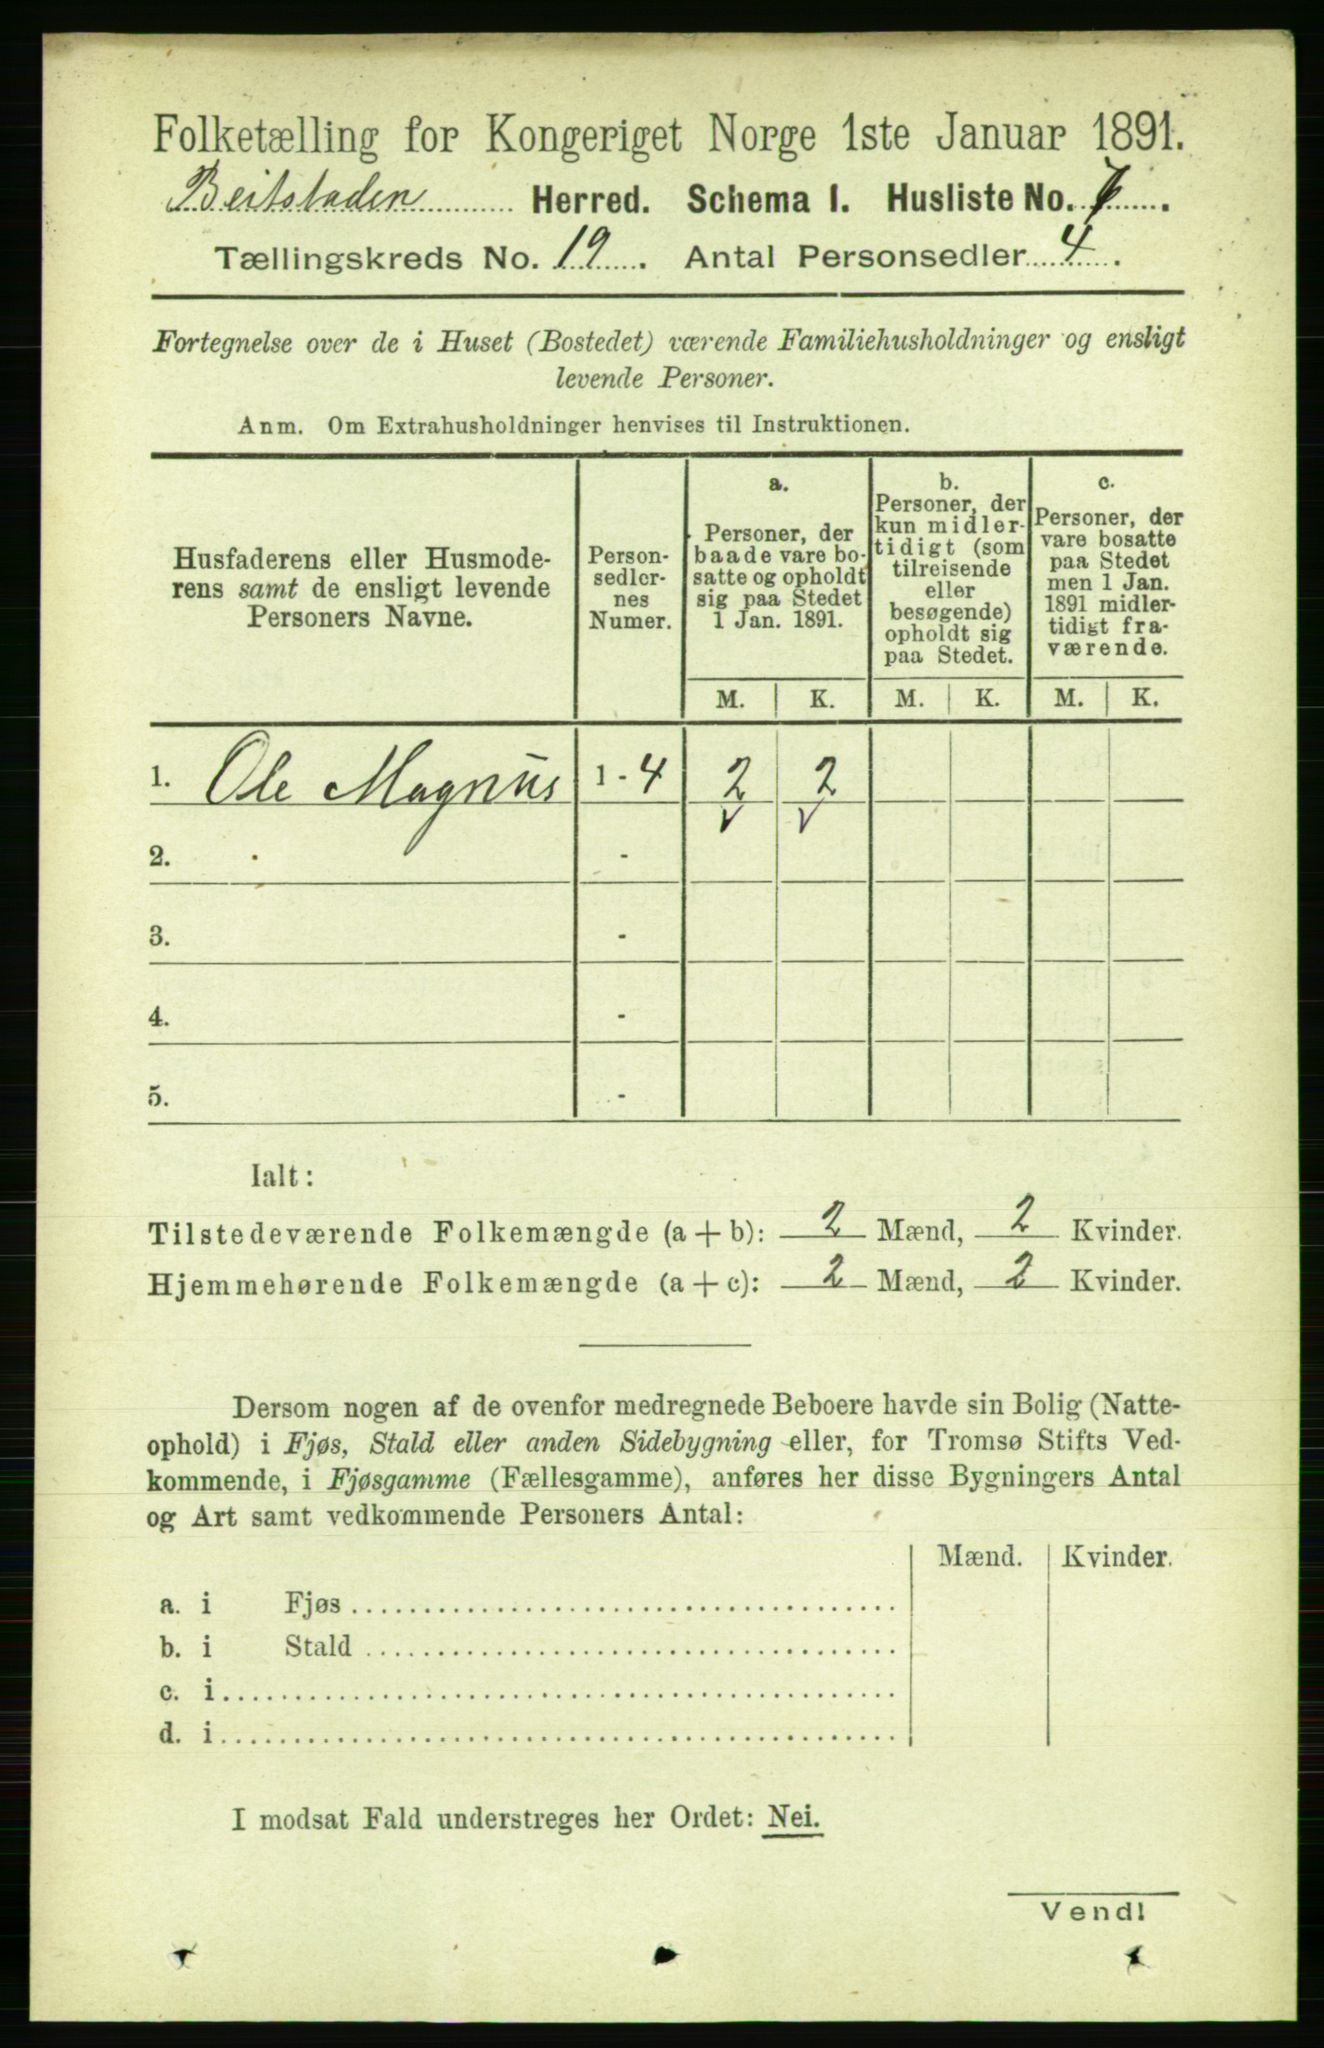 Folketælling for Kongeriget Norge 1ste Januar 1891.
Beitstaden Herred. Schema 1. Husliste No. 7.
Tællingskreds No. 19. Antal Personsedler 4.
Fortegnelse over de i Huset (Bostedet) værende Familiehusholdninger og ensligt
levende Personer.
Anm. Om Extrahusholdninger henvises til Instruktionen.
Husfaderens eller Husmode-
rens samt de ensligt levende
Personers Navne.
Person-
sedler-
nes
Numer.
a.
Personer, der
baade vare bo-
satte og opholdt
sig paa Stedet
1 Jan. 1891.
b.
Personer, der
kun midler-
tidigt (som
tilreisende
eller
besøgende)
opholdt sig
paa Stedet.
c.
Personer, der
vare bosatte
paa Stedet
men 1 Jan.
1891 midler-
tidigt fra-
værende.
M. K. M. K. M. K.
1. Ole Magnus 1 - 4 2 2
2. -
3. -
4. -
5. -
Ialt:
Tilstedeværende Folkemængde (a + b): 2 Mænd, 2 Kvinder.
Hjemmehørende Folkemængde (a + c): 2 Mænd, 2 Kvinder.
Dersom nogen af de ovenfor medregnede Beboere havde sin Bolig (Natte-
ophold) i Fjøs, Stald eller anden Sidebygning eller, for Tromsø Stifts Ved-
kommende, i Fjøsgamme (Fællesgamme), anføres her disse Bygningers Antal
og Art samt vedkommende Personers Antal:
Mænd. Kvinder.
a. i Fjøs
b. i Stald
c. i
d. i
I modsat Fald understreges her Ordet: Nei.
Vend!